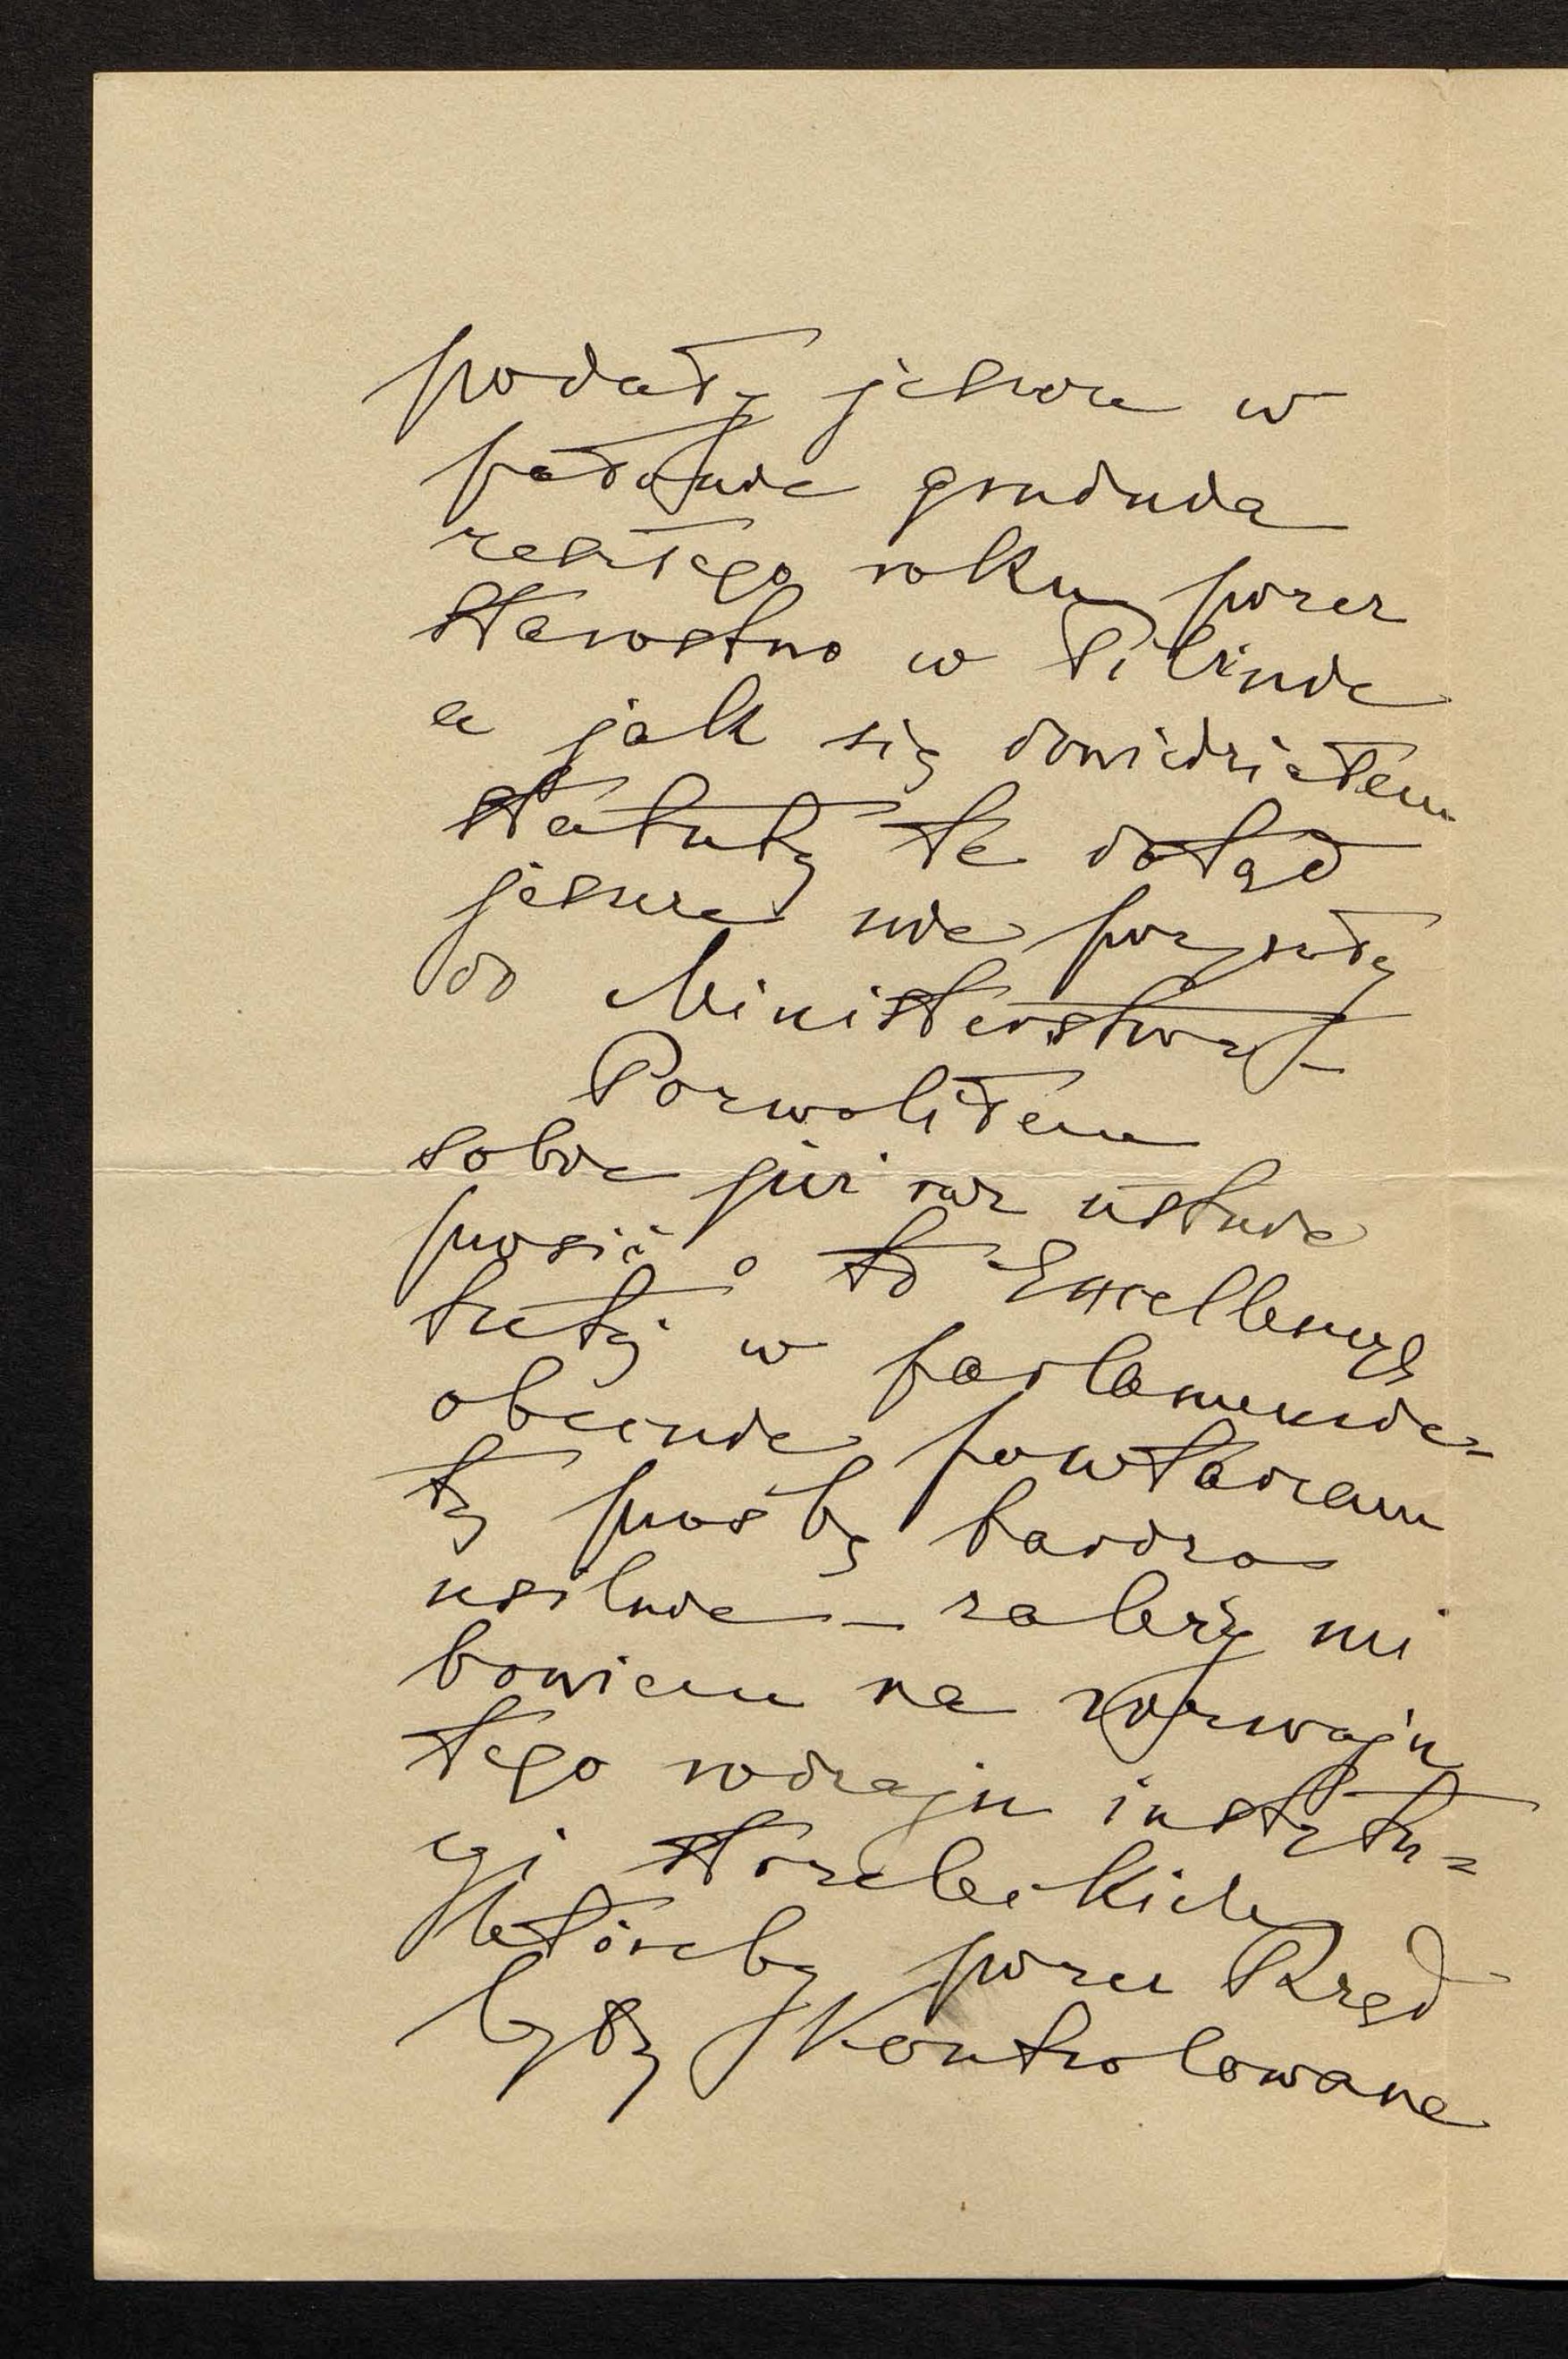 podały jeszcze w
połowie grudnia
zeszłego roku przez
starostwo w Pilznie
a jak się dowiedziałem
statuty te dotąd
jeszcze nie przyszły
do Ministerstwa –
Pozwoliłem
sobie już raz ustnie
prosić o to Excellencyę
tutaj w parlamencie –
obecnie powtarzam
tę prośbę bardzo
usilnie – zależy mi
bowiem na rozwoju
tego rodzaju instytu=
cyi strzeleckich
któreby przez Rząd
były kontrolowane